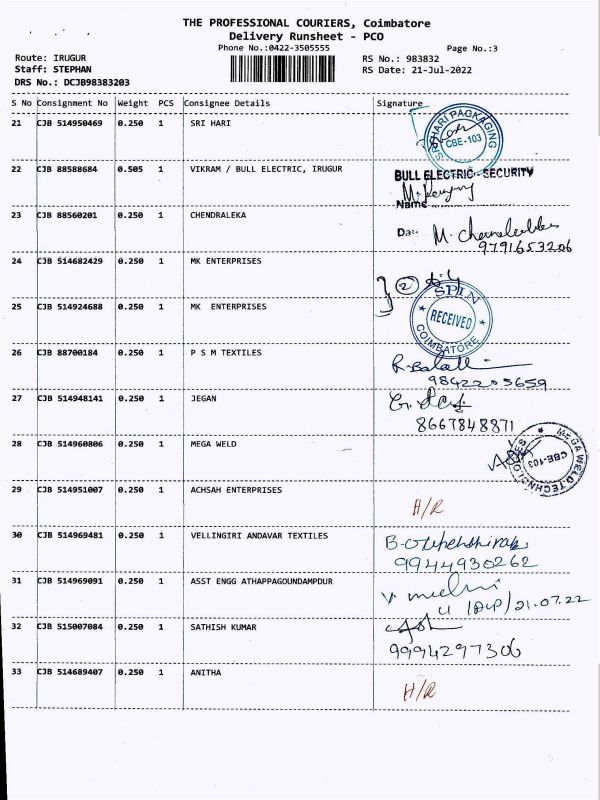 THE PROFESSIONAL COURIERS, Coimbatore
Delivery Runsheet - PCO
Phone No.:0422-3505555
Page No.:3
Route: IRUGUR
RS No.: 983832
Staff: STEPHAN
RS Date: 21-Jul-2022
DRS No.: DCJB98383203
S No Consignment No Weight PCS Consignee Details Signature
21 CJB 514950469 0.250 1 SRI HARI
HARI PACKAGING
CBE-103
22 CJB 88588684 0.505 1 VIKRAM / BULL ELECTRIC, IRUGUR
BULL ELECTRIC - SECURITY
Name
23 CJB 88560201 0.250 1 CHENDRALEKA
9791653206
24 CJB 514682429 0.250 1 MK ENTERPRISES
2
25 CJB 514924688 0.250 1 MK ENTERPRISES
SPIN
RECEIVED
COIMBATORE
26 CJB 88700184 0.250 1 P S M TEXTILES
9842205659
27 CJB 514948141 0.250 1 JEGAN
8667848871
28 CJB 514960806 0.250 1 MEGA WELD
MEGA WELD TECHNOLOGIES
CBE-103
29 CJB 514951007 0.250 1 ACHSAH ENTERPRISES
H/R
30 CJB 514969481 0.250 1 VELLINGIRI ANDAVAR TEXTILES
9944930262
31 CJB 514969091 0.250 1 ASST ENGG ATHAPPAGOUNDAMPDUR
21.07.22
32 CJB 515007084 0.250 1 SATHISH KUMAR
9994297306
33 CJB 514689407 0.250 1 ANITHA
H/R